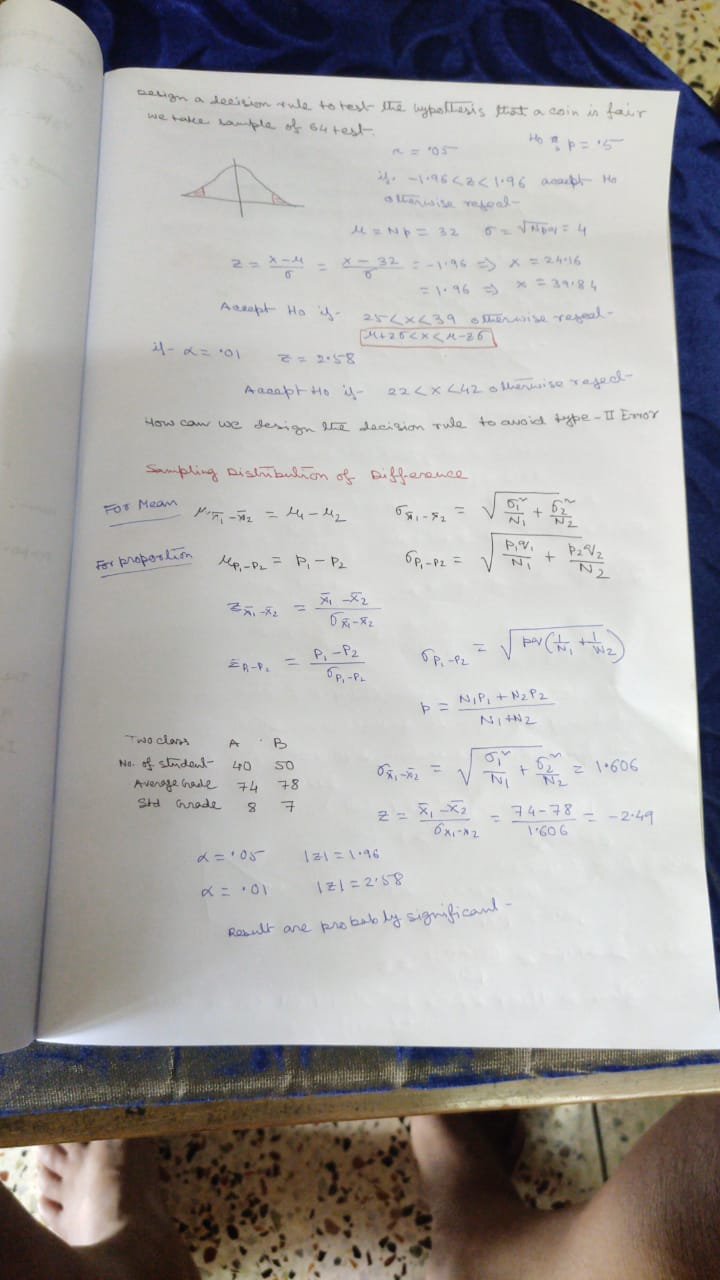 Design a decision rule to test the hypothesis that a coin is fair
we take sample of 64 test.
H₀ : p = .5
α = .05
if -1.96 < z < 1.96 accept H₀
otherwise reject
μ = Np = 32 σ = √Npq = 4
z = x-μ/σ = x-32/σ = -1.96 ⇒ x = 24.16
= 1.96 ⇒ x = 39.84
Accept H₀ if 25<x<39 otherwise reject
μ+zσ<x<μ-zσ
if α = .01 z = 2.58
Accept H₀ if 22<x<42 otherwise reject
How can we design the decision rule to avoid type-II Error
Sampling Distribution of Difference
For Mean μx̄₁-x̄₂ = μ₁-μ₂ σx̄₁-x̄₂ = √(σ₁²/N₁ + σ₂²/N₂)
For proportion μP₁-P₂ = P₁-P₂ σP₁-P₂ = √(P₁q₁/N₁ + P₂q₂/N₂)
zx̄₁-x̄₂ = x̄₁-x̄₂/σx̄₁-x̄₂
zP₁-P₂ = P₁-P₂/σP₁-P₂ σP₁-P₂ = √pq(1/N₁ + 1/N₂)
p = N₁P₁+N₂P₂/N₁+N₂
Two class A B
No. of student 40 50
Average Grade 74 78
Std Grade 8 7
σx̄₁-x̄₂ = √(σ₁²/N₁ + σ₂²/N₂) = 1.606
z = x̄₁-x̄₂/σx₁-x₂ = 74-78/1.606 = -2.49
α = .05 |z| = 1.96
α = .01 |z| = 2.58
Result are probably significant